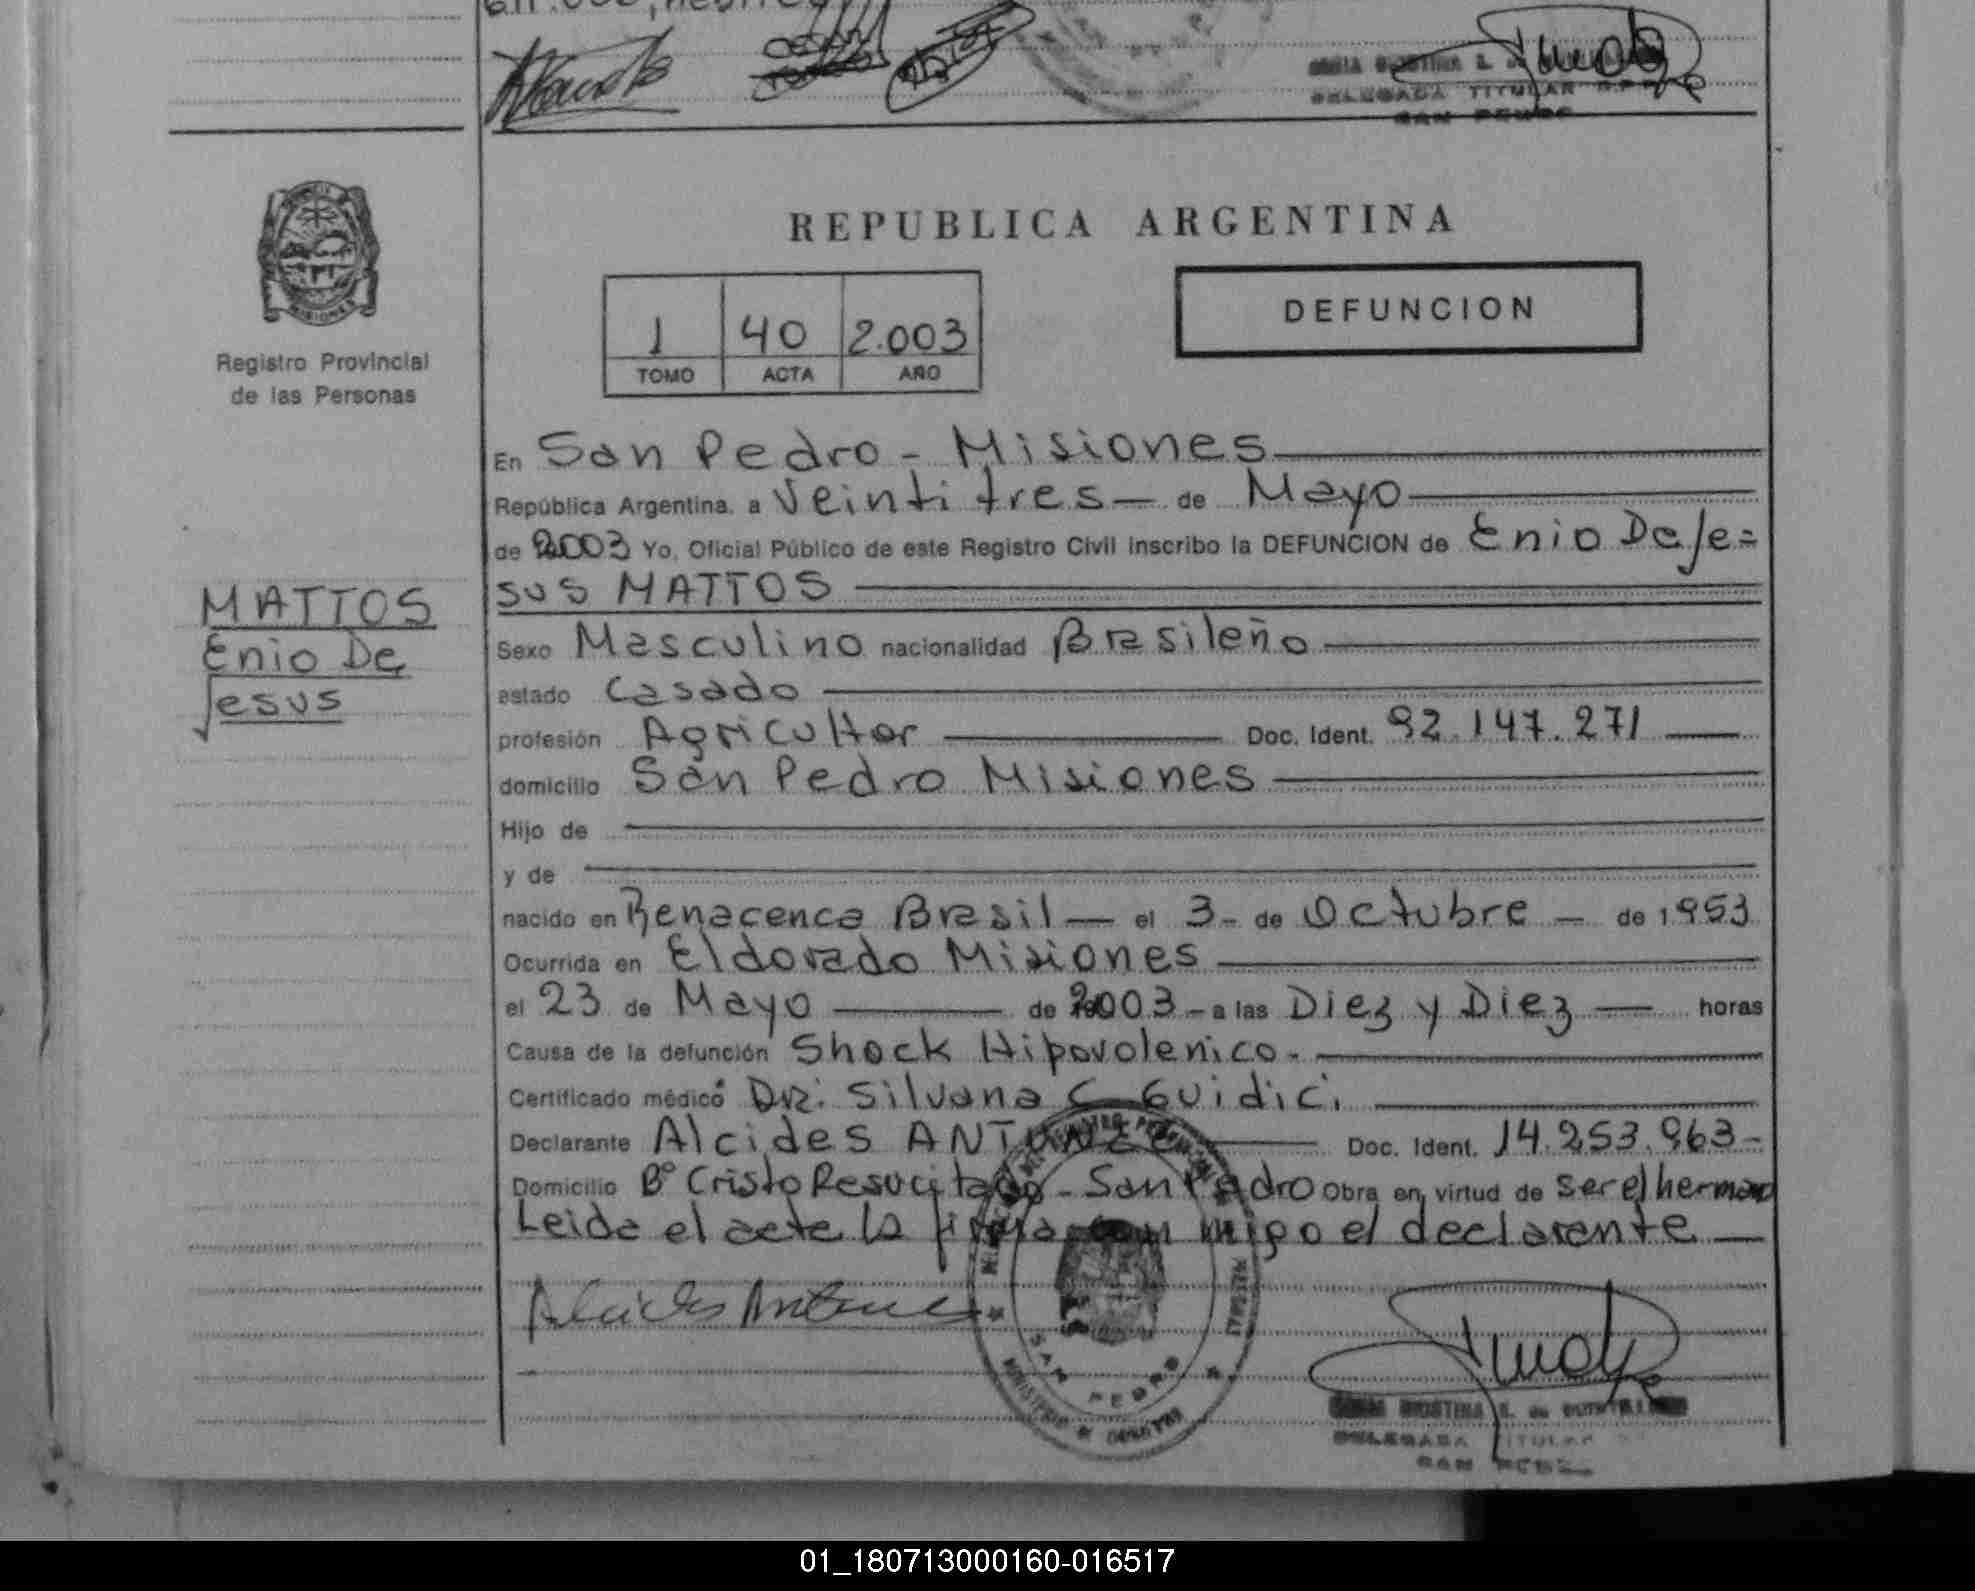 REPUBLICA ARGENTINA
1 40 2.003
TOMO ACTA AÑO
DEFUNCION
MISIONES
Registro Provincial
de las Personas
MATTOS
Enio De
Jesus
En San Pedro - Misiones
República Argentina, a Veinti tres de Mayo
de 2003 Yo, Oficial Público de este Registro Civil inscribo la DEFUNCION de Enio De Je=
sus MATTOS
Sexo Masculino nacionalidad Brasileño
estado Casado
profesión Agricultor Doc. Ident. 92.147.271
domicilio San Pedro Misiones
Hijo de
y de
nacido en Renacenca Brasil el 3 - de Octubre - de 1953
Ocurrida en Eldorado Misiones
el 23 de Mayo de 2003 - a las Diez y Diez horas
Causa de la defunción Shock Hipovolenico.
Certificado médico Dra: Silvana C Guidici
Declarante Alcides ANTUNEZ Doc. Ident. 14.253.963-
Domicilio Bº Cristo Resucitado - San Pedro Obra en virtud de ser el hermano
Leida el acta la firma con migo el declarante
Alcides Antunes
SAN PEDRO
DELEGADA TITULAR
SAN PEDRO
01_180713000160-016517